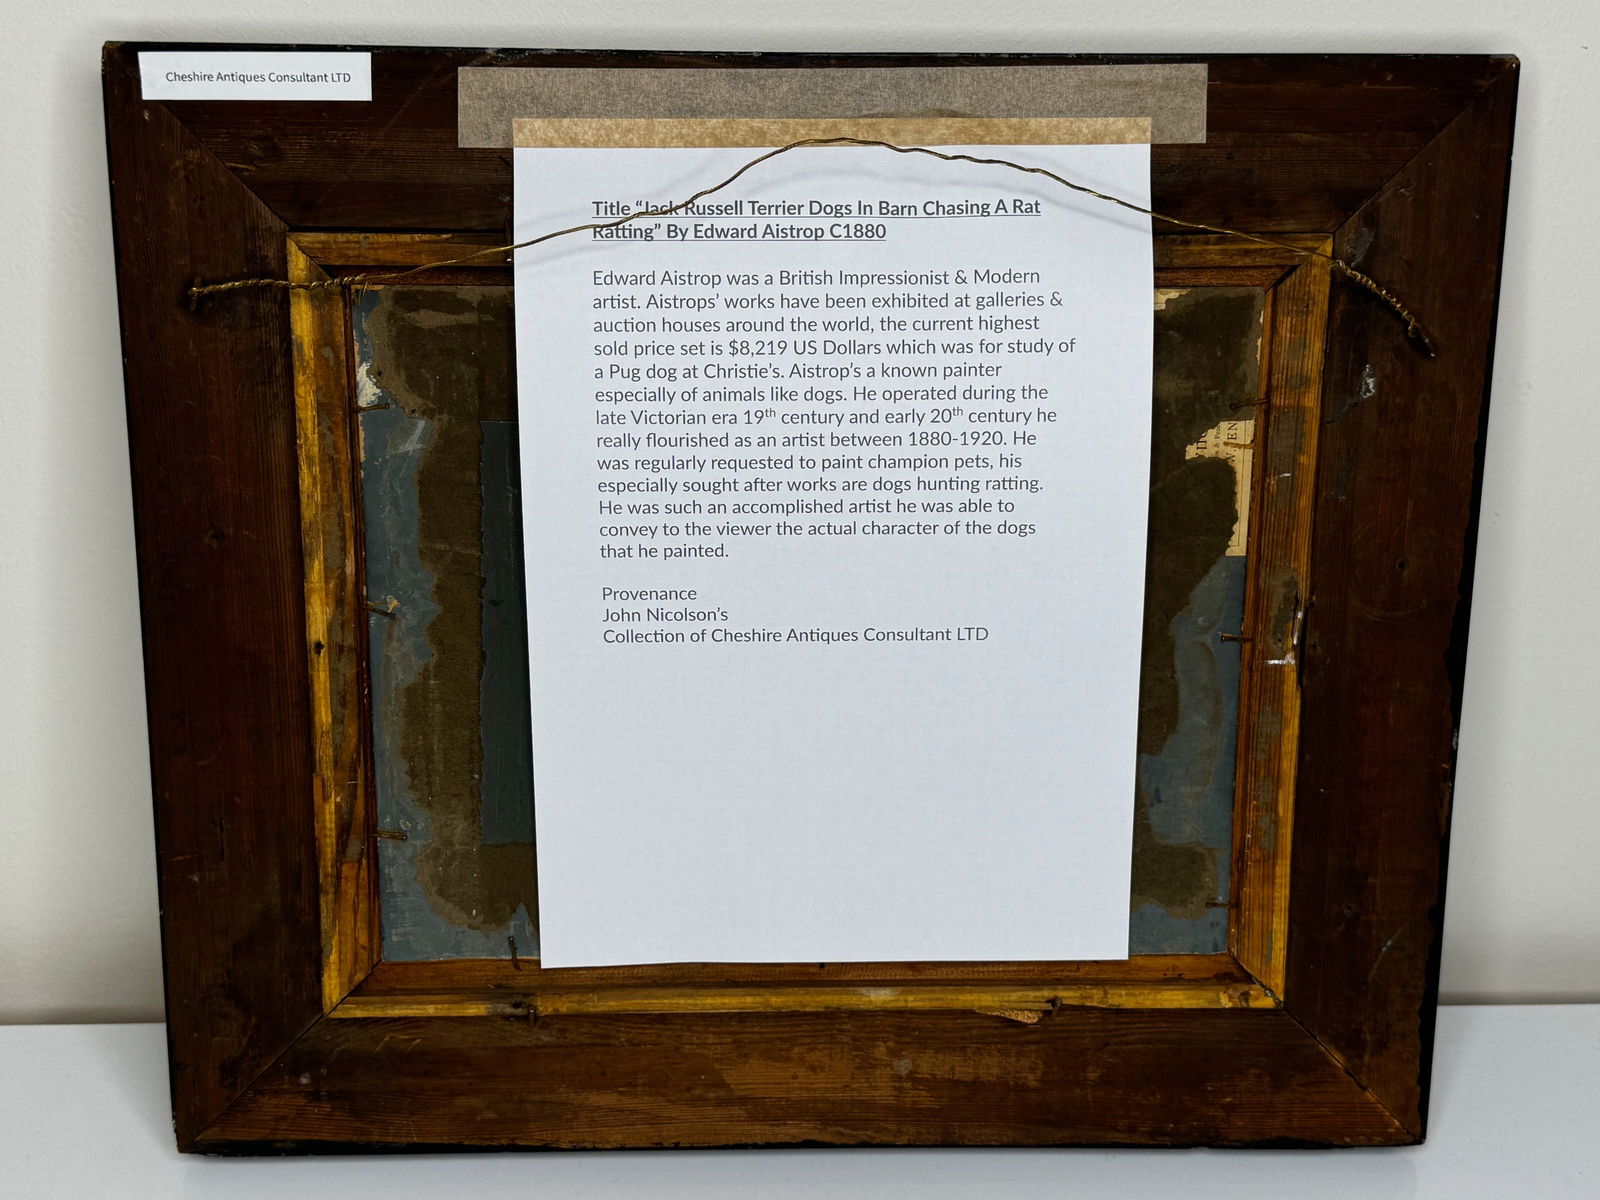 Cheshire Antiques Consultant LTD
Title “Jack Russell Terrier Dogs In Barn Chasing A Rat
Ratting” By Edward Aistrop C1880
Edward Aistrop was a British Impressionist & Modern
artist. Aistrops’ works have been exhibited at galleries &
auction houses around the world, the current highest
sold price set is $8,219 US Dollars which was for study of
a Pug dog at Christie’s. Aistrop’s a known painter
especially of animals like dogs. He operated during the
late Victorian era 19th century and early 20th century he
really flourished as an artist between 1880-1920. He
was regularly requested to paint champion pets, his
especially sought after works are dogs hunting ratting.
He was such an accomplished artist he was able to
convey to the viewer the actual character of the dogs
that he painted.
Provenance
John Nicolson’s
Collection of Cheshire Antiques Consultant LTD